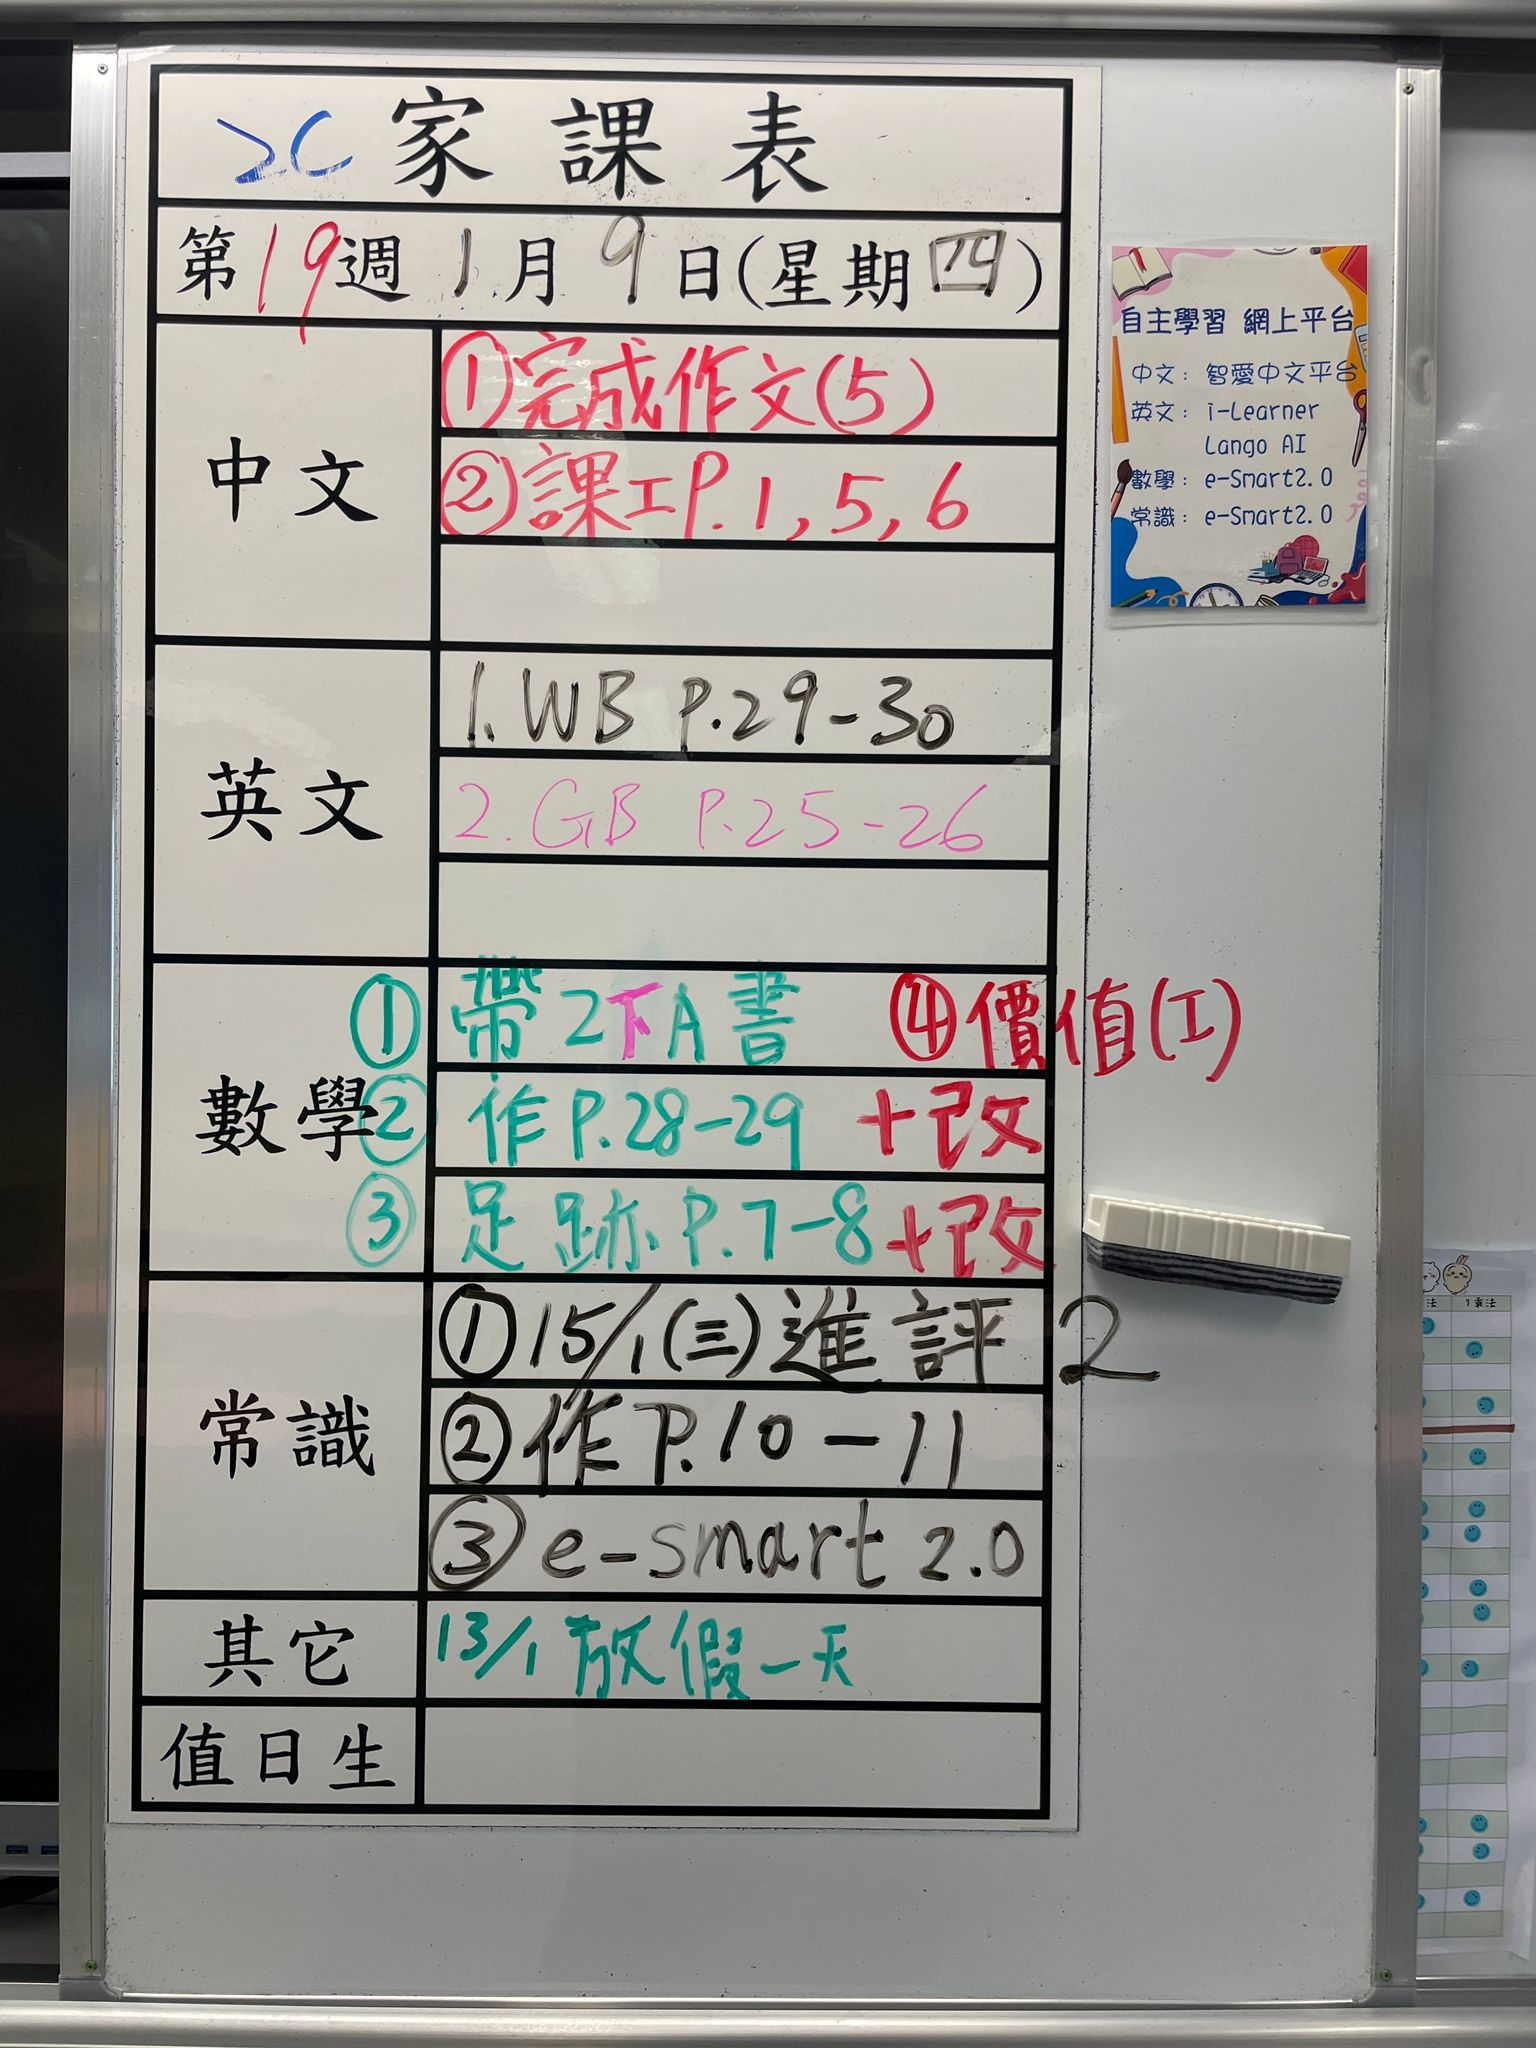 2C 家課表
第19週 1月9日(星期四)
中文
①完成作文(5)
②課工P.1,5,6
英文
1. WB P.29-30
2. GB P.25-26
數學
① 帶2下A書 ④價值(工)
② 作P.28-29 +改
③ 足跡P.7-8 +改
常識
①15/1(三)進評2
②作P.10-11
③e-smart 2.0
其它
13/1 放假一天
值日生
自主學習 網上平台
中文: 智愛中文平台
英文: i-Learner
Lango AI
數學: e-Smart2.0
常識: e-Smart2.0